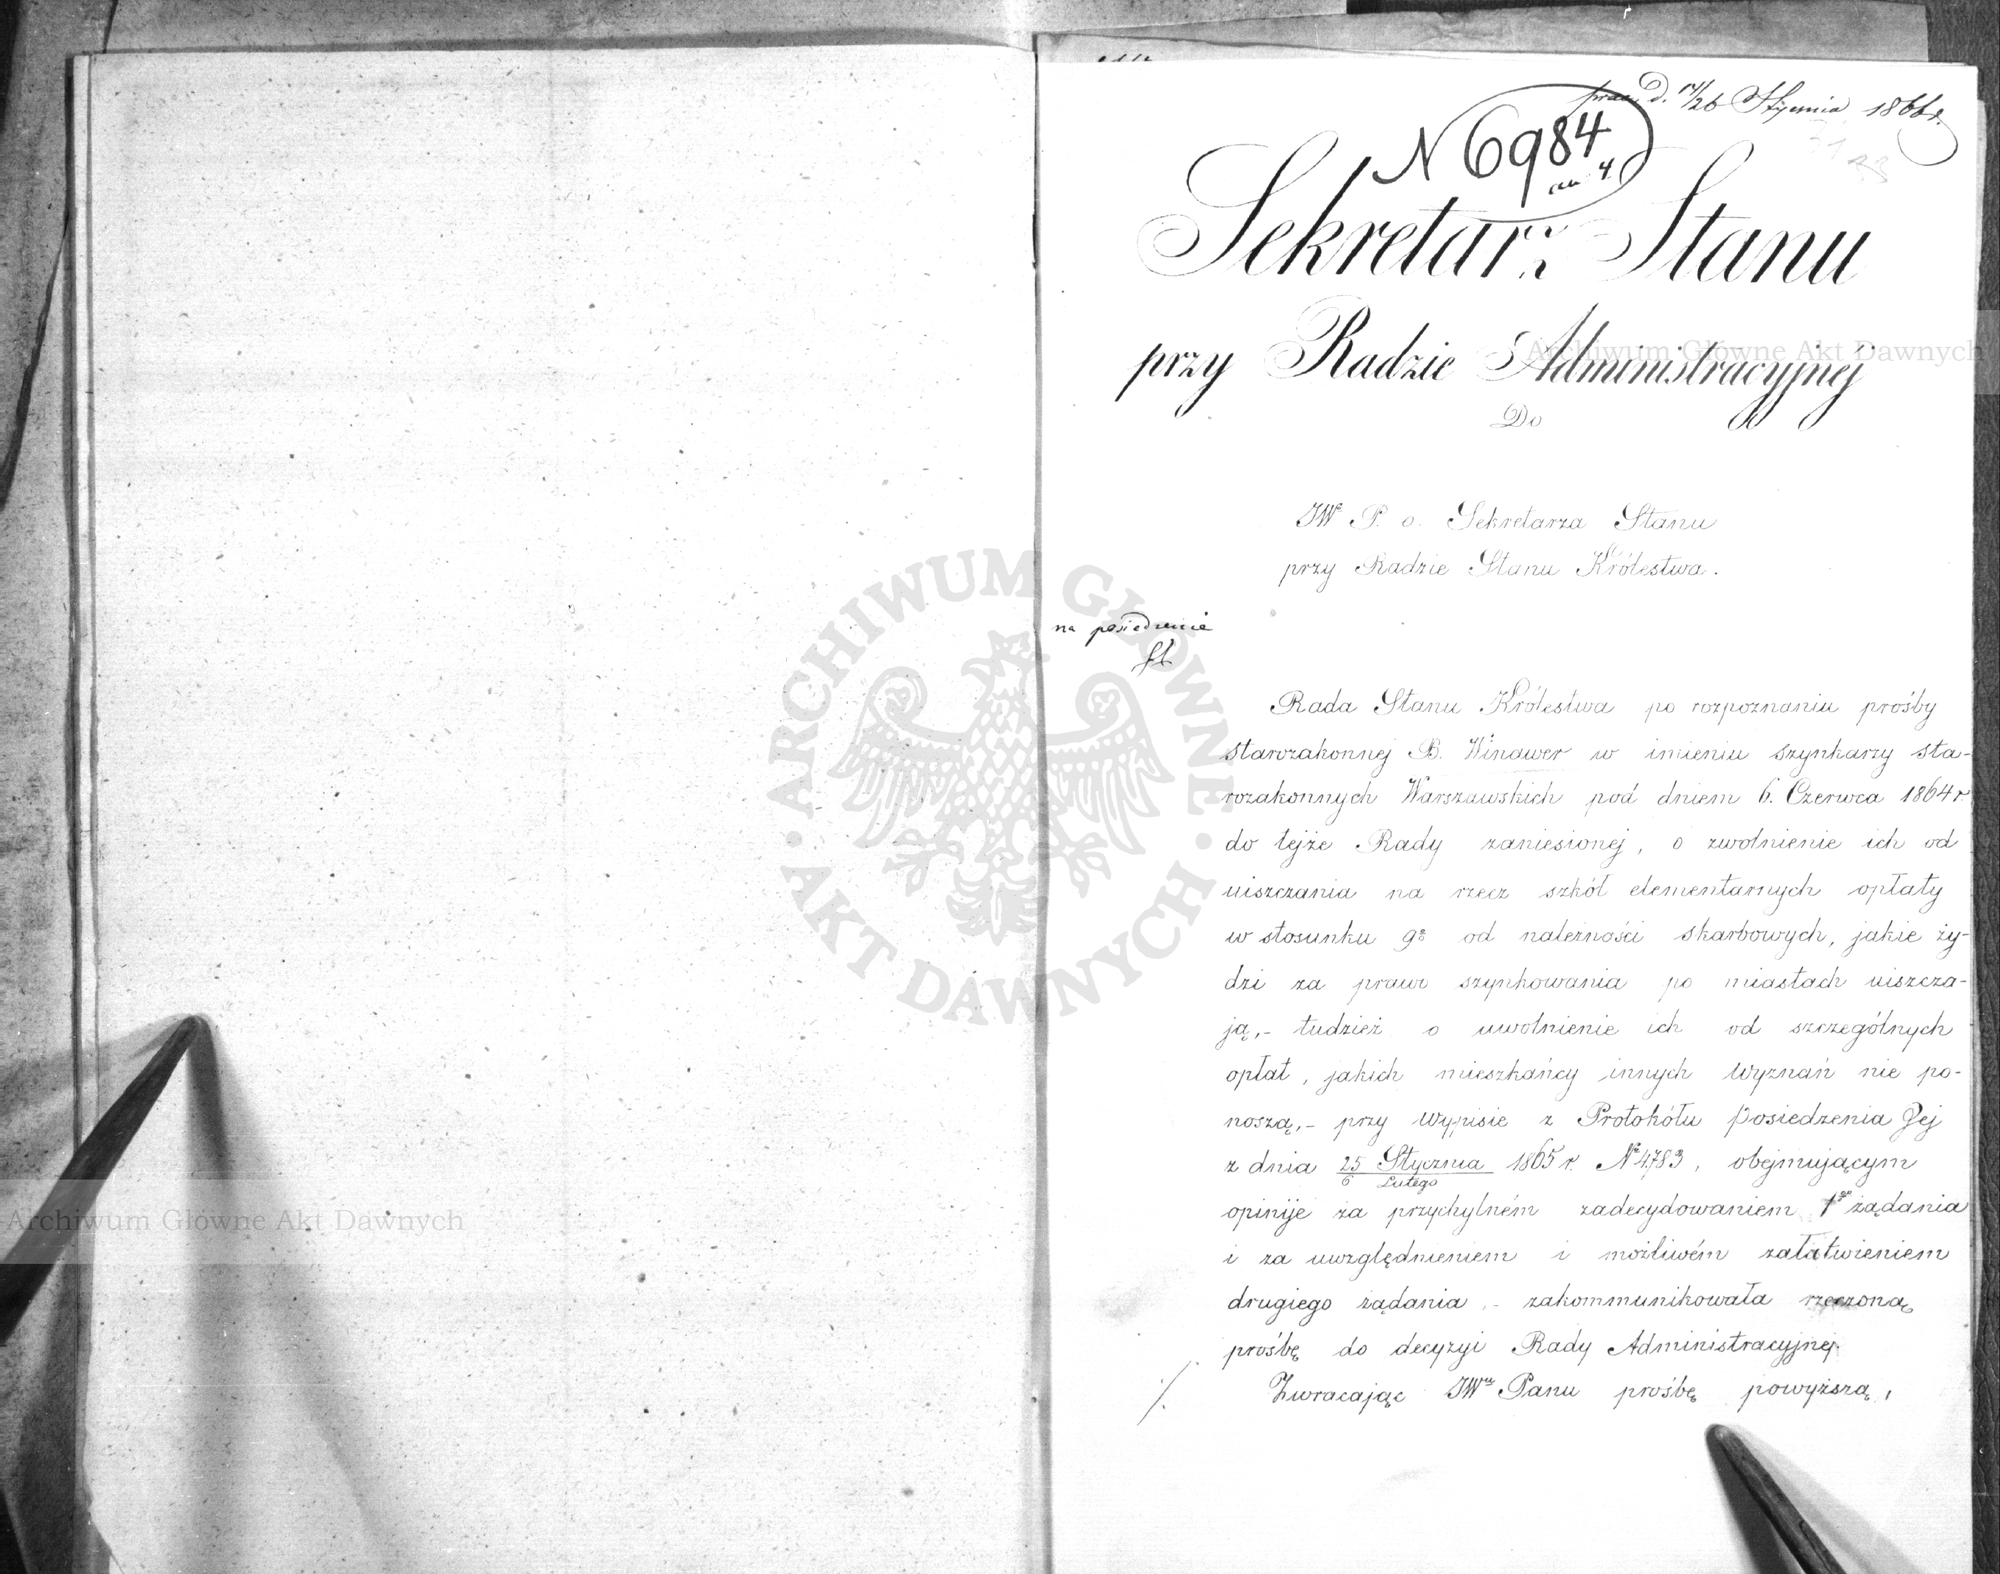 D. 14/26 Stycznia 1866 r.
N 6984
Sekretarz Stanu
przy Radzie Administracyjnej
Do
JWº P. o. Sekretarza Stanu
przy Radzie Stanu Królestwa.
na posiedzenie
Rada Stanu Królestwa po rozpoznaniu prośby
starozakonnej B. Winawer w imieniu szynkarzy sta-
rozakonnych Warszawskich pod dniem 6. Czerwca 1864 r.
do tejże Rady zaniesionej, o zwolnienie ich od
uiszczania na rzecz szkół elementarnych opłaty
w stosunku od należności skarbowych, jakie ży-
dzi za prawo szynkowania po miastach uiszcza-
ją,- tudzież o uwolnienie ich od szczególnych
opłat, jakich mieszkańcy innych wyznań nie po-
noszą,- przy wypisie z Protokółu Posiedzenia Jej
z dnia 25 Stycznia/6 Lutego 1865 r. Nº 4783, obejmującym
opinije za przychylném zadecydowaniem 1go żądania
i za uwzględnieniem i możliwém załatwieniem
drugiego żądania,- zakommunikowała rzeczoną
prośbę do decyzyi Rady Administracyjnej.
Zwracając JWu Panu prośbę powyższą,
Archiwum Główne Akt Dawnych
ARCHIWUM GŁÓWNE · AKT DAWNYCH ·
Archiwum Główne Akt Dawnych